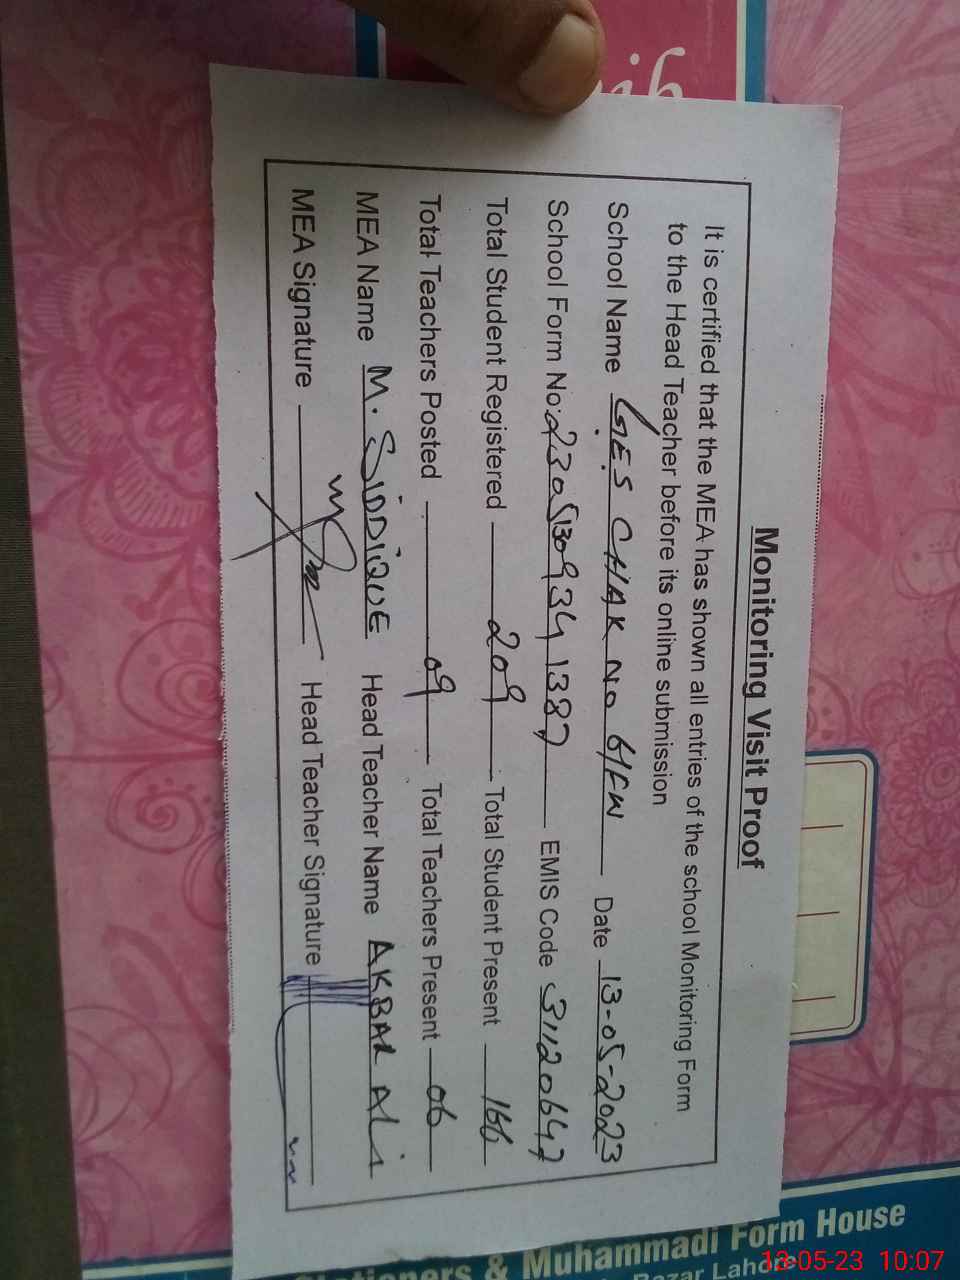 Monitoring Visit Proof
It is certified that the MEA has shown all entries of the school Monitoring Form
to the Head Teacher before its online submission
School Name G.E.S CHAK NO 6/FW Date 13-05-2023
School Form No: EMIS Code 31120647
Total Student Registered 209 Total Student Present 166
Total Teachers Posted 09 Total Teachers Present 06
MEA Name M. SIDDIQUE Head Teacher Name AKBAR ALI
MEA Signature Head Teacher Signature
& Muhammadi Form House
Bazar Lahore
13-05-23 10:07